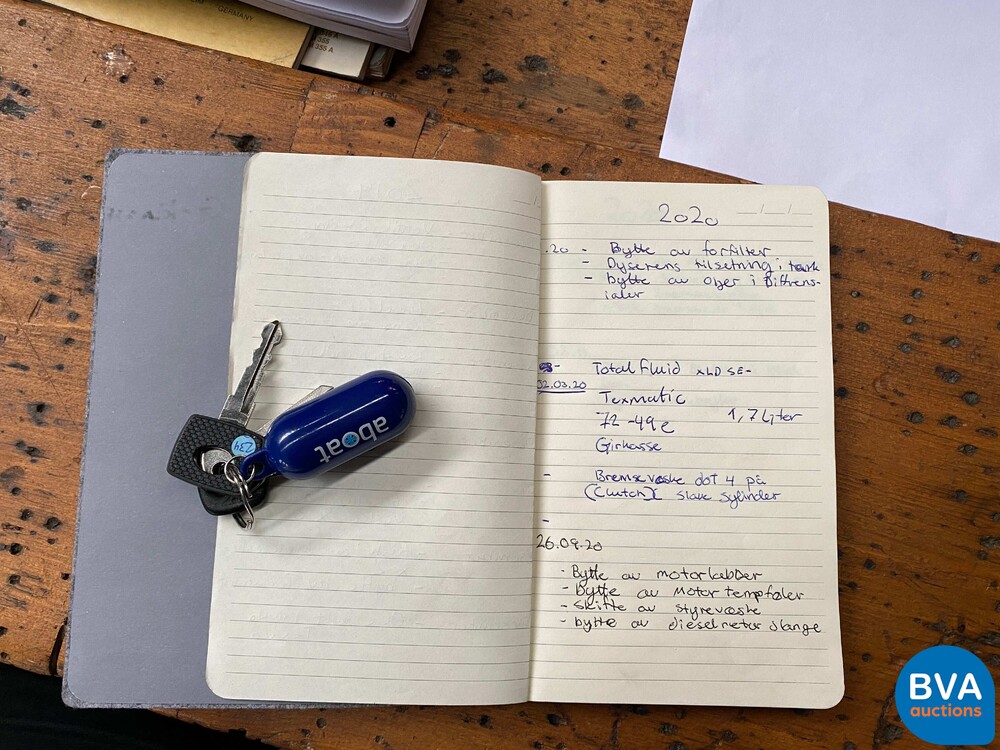 GERMANY
355
355 A
2020
.20 - Bytte av forfilter
- Dyserens tilsetning i tank
- bytte av oljer i Diffrens-
ialer
Total fluid XLD SE-
02.03.20
Texmatic
1,7 Liter
Girkasse
- Bremsevæske dot 4 på
(Clutch) slave sylinder
-
26.09.20
- Bytte av motorlabber
- bytte av Motor tempføler
- Skifte av styrevæske
- bytte av dieselretur slange
aboat
234
BVA
auctions